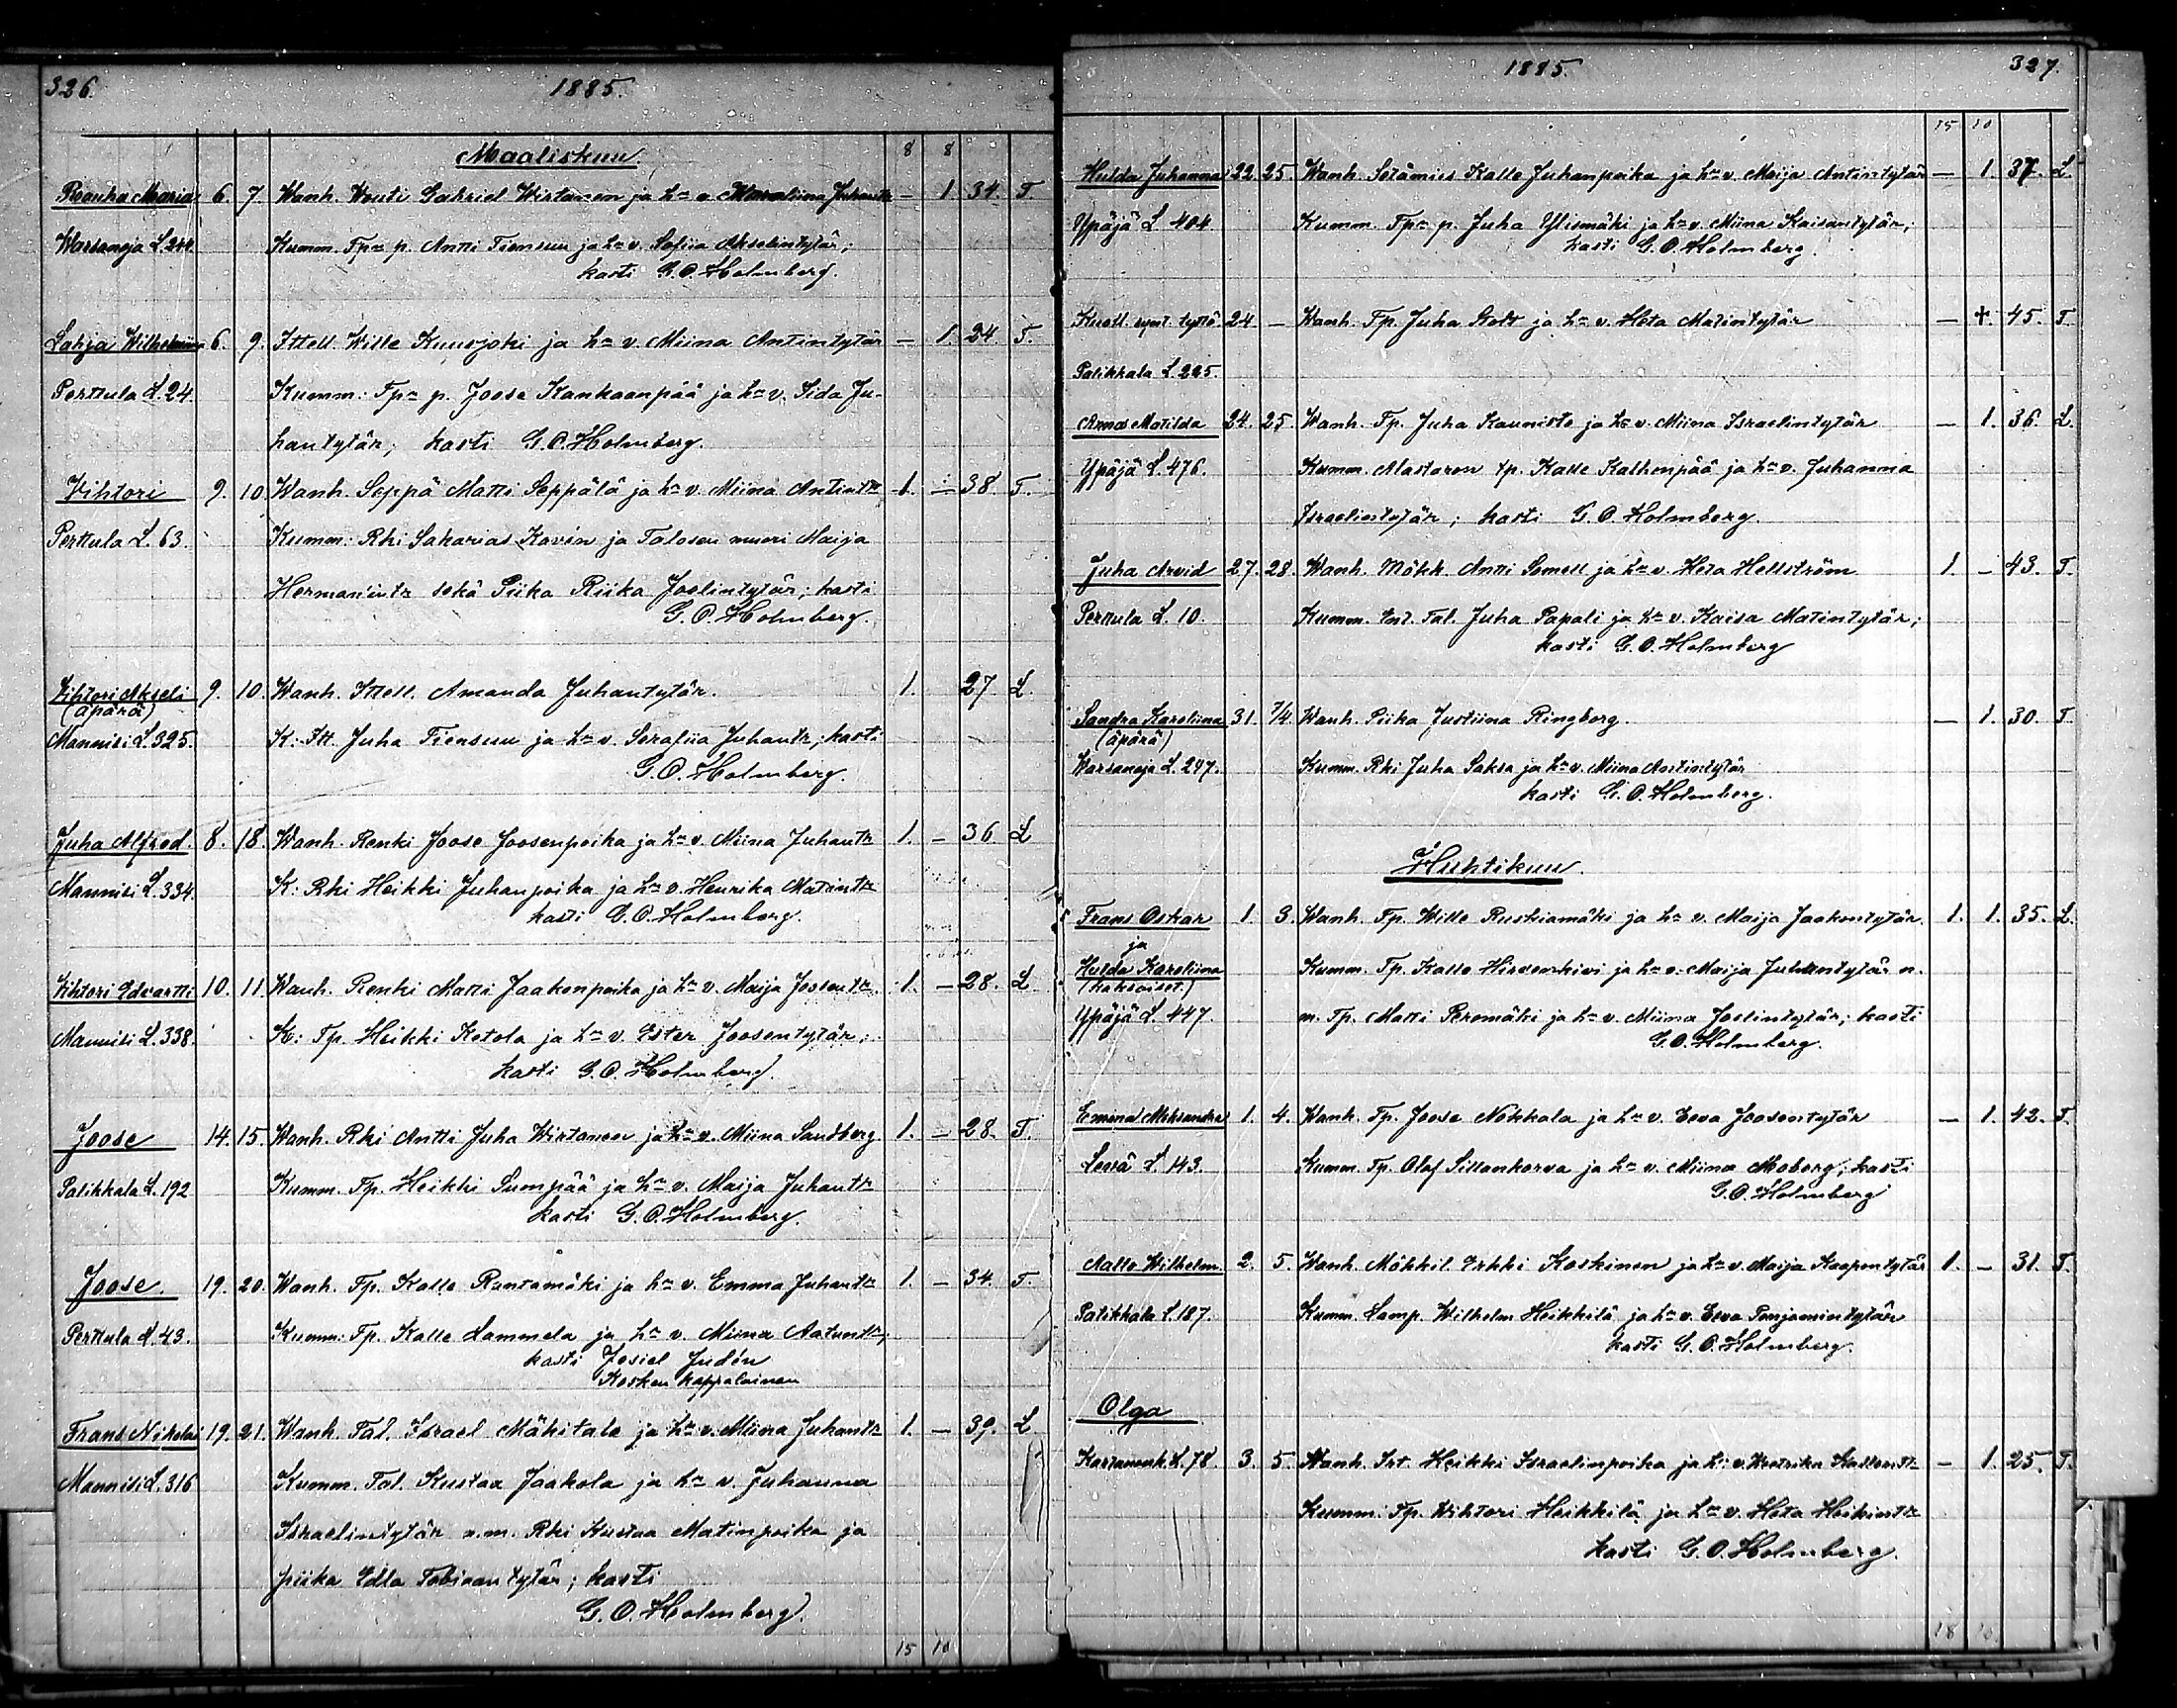 326. 1885.
Maaliskuu 8 8
Rauha Maria 6. 7. Wanh. Wouti Gabriel Wirtanen ja hn v. Juhantr — 1 34. T.
Warsanoja L. 244 Kumm. Tpn p. Antti Tiensuu ja hn v. Sofiia Akselintytär;
kasti G.O. Holmberg.
Lahja Wilhelmiina 6. 9. Ittell. Wille Kuusjoki ja hn v. Miina Antintytär — 1 24. T.
Perttula L. 24. Kumm: Tpn p. Joose Kankaanpää ja hn v. Iida Ju-
hantytär; kasti G.O. Holmberg.
Vihtori 9. 10. Wanh. Seppä Matti Seppälä ja hn v. Miina Antintr 1. — 38. T.
Perttula L. 63. Kumm: Rki Sakarias Kavén ja Talosen muori Maija
Hermanintr sekä Piika Riika Joelintytär; kasti
G.O. Holmberg.
Vihtori Akseli 9. 10. Wanh. Ittell. Amanda Juhantytär. 1. 27 L.
(äpärä)
Mannisi L. 325. K: Itt. Juha Tiensuu ja hn v. Serafiia Juhantr; kasti
G.O. Holmberg.
Juha Alfred. 8. 18. Wanh. Renki Joose Joosenpoika ja hn v. Miina Juhantr 1. — 36 L
Mannisi L. 334. K: Rki Heikki Juhanpoika ja hn v. Henrika Matintr
kasti G.O. Holmberg.
Vihtori Edvartti 10. 11. Wanh. Renki Matti Jaakonpoika ja hn v. Maija Joosentr 1. — 28. L
Mannisi L. 338. K: Tp. Heikki Ketola ja hn v. Ester Joosentytär;
kasti G.O. Holmberg.
Joose 14. 15. Wanh. Rki Antti Juha Wirtanen ja hn v. Miina Sandberg 1. — 28. T.
Palikkala L. 192 Kumm. Tp. Heikki Sumpää ja hn v. Maija Juhantr
kasti G.O. Holmberg.
Joose. 19. 20. Wanh. Tp. Kalle Rantamäki ja hn v. Emma Juhantr 1. — 34. T.
Perttula L. 43. Kumm: Tp. Kalle Lammela ja hn v. Miina Aatuntr;
kasti Josiel Judén
Kosken kappalainen
Frans Nikolai 19. 21. Wanh. Tal. Israel Mäkitalo ja hn v. Miina Juhantr 1. — 39. L
Mannisi L. 316 Kumm. Tal. Kustaa Jaakola ja hn v. Juhanna
Israelintytär n.m. Rki Kustaa Matinpoika ja
piika Edla Tobiaantytär; kasti
G.O. Holmberg.
15 10
1885. 327.
15 10
Hulda Juhanna 22. 25. Wanh. Sotamies Kalle Juhanpoika ja hn v. Maija Antintytär — 1. 37. L.
Ypäjä L. 404 Kumm. Tpn p. Juha Ylismäki ja hn v. Miina Kaisantytär;
kasti G.O. Holmberg.
Kuoll. synt. tyttö 24 — Wanh. Tp. Juha Stolt ja hn v. Heta Matintytär — +. 45. T.
Palikkala L. 225.
Anna Matilda 24. 25. Wanh. Tp. Juha Kaunisto ja hn v. Miina Israelintytär — 1. 36. L.
Ypäjä L. 476. Kumm. Alastaron tp. Kalle Kalhenpää ja hn v. Juhanna
Israelintytär; kasti G.O. Holmberg.
Juha Arvid 27. 28. Wanh. Mökk. Antti Somell ja hn v. Heta Hellström 1. — 43. T.
Perttula L. 10. Kumm. Ent. Tal. Juha Papali ja hn v. Kaisa Matintytär;
kasti G.O. Holmberg
Sandra Karoliina 31. 7/4 Wanh. Piika Justiina Ringborg. — 1. 30. T.
(äpärä)
Warsanoja L. 247. Kumm. Rki Juha Saksa ja hn v. Miina Antintytär
kasti G.O. Holmberg.
Huhtikuu.
Frans Oskar 1. 3. Wanh. Tp. Wille Ruskiamäki ja hn v. Maija Jaakontytär. 1. 1. 35. L.
ja
Hulda Karoliina Kumm. Tp. Kalle Hirvenkivi ja hn v. Maija Juhantytär n.
(kaksoiset.)
Ypäjä L. 447. m. Tp. Matti Peromäki ja hn v. Miina Joelintytär; kasti
G.O. Holmberg.
Emma Aleksandra 1. 4. Wanh. Tp. Joose Nokkala ja hn v. Eeva Joosentytär — 1. 42. T.
L. 143. Kumm. Tp. Olof Sillankorva ja hn v. Miina Moberg; kasti
G.O. Holmberg
Kalle Wilhelm. 2. 5. Wanh. Mökkil. Erkki Koskinen ja hn v. Maija Kaapontytär 1. — 31. T.
Palikkala L. 187. Kumm. Lamp. Wilhelm Heikkilä ja hn v. Eeva Penjamintytär
kasti G.O. Holmberg.
Olga
L. 78 3. 5. Wanh. Heikki Israelinpoika ja hn v. Kallentr — 1. 25. T.
Kumm. Tp. Wihtori Heikkilä ja hn v. Heta Heikintr
kasti G.O. Holmberg.
18 10